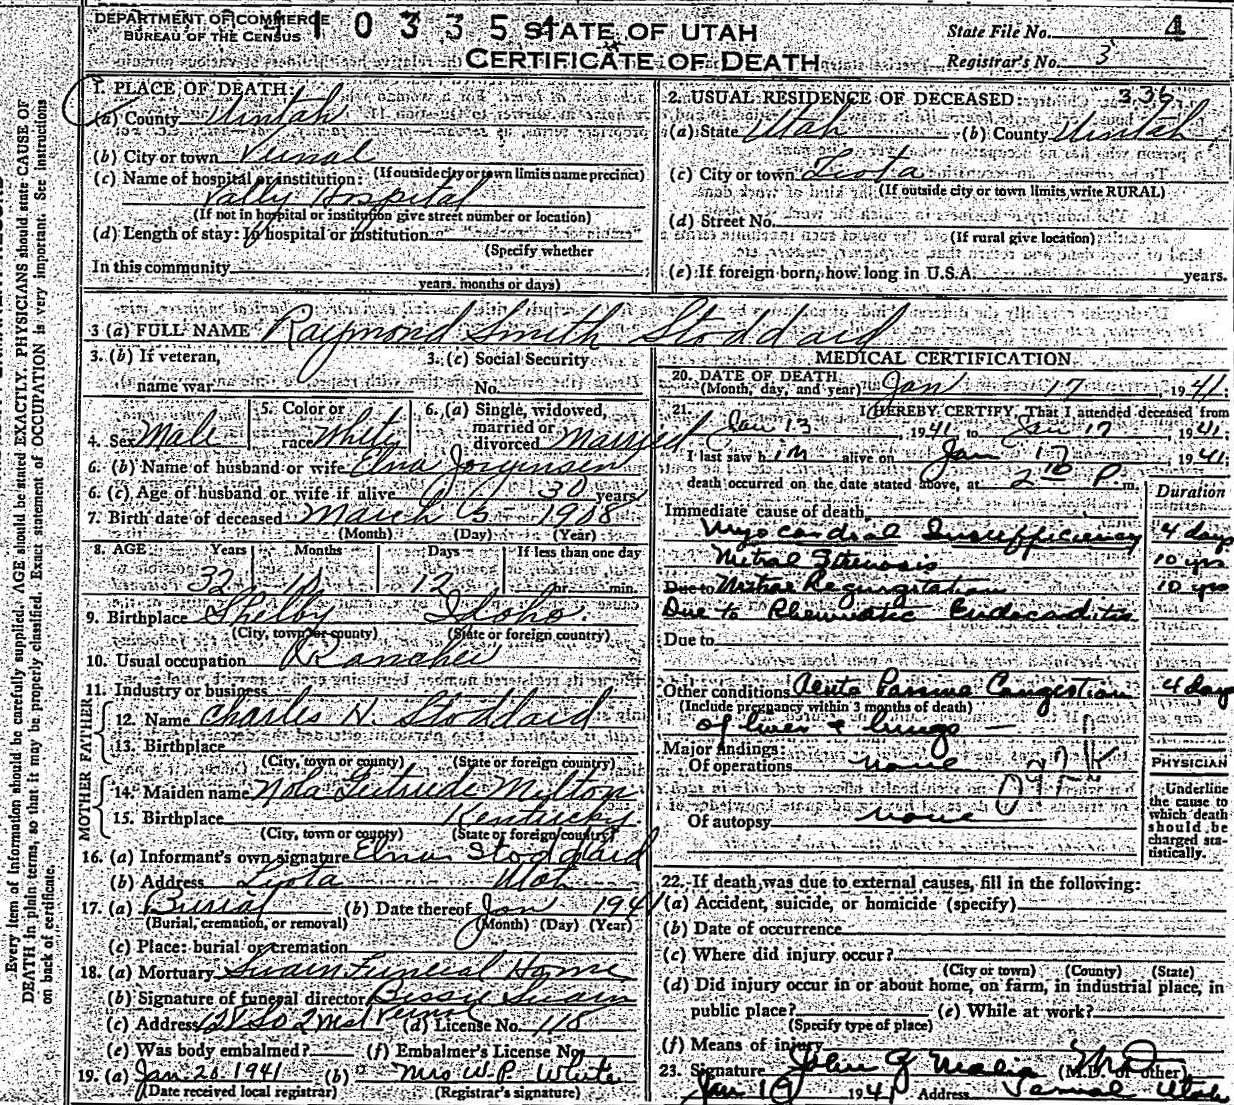 DEPARTMENT OF COMMERCE
BUREAU OF THE CENSUS
STATE OF UTAH
CERTIFICATE OF DEATH
State File No. 4
Registrar's No. 3
1. PLACE OF DEATH:
(a) County Uintah
(b) City or town Vernal
(If outside city or town limits name precinct)
(c) Name of hospital or institution:
Vally Hospital
(If not in hospital or institution give street number or location)
(d) Length of stay: In hospital or institution
(Specify whether
In this community
years, months or days)
2. USUAL RESIDENCE OF DECEASED: 336
(a) State Utah (b) County Uintah
(c) City or town
(If outside city or town limits, write RURAL)
(d) Street No.
(If rural give location)
(e) If foreign born, how long in U.S.A. years.
3 (a) FULL NAME Raymond Smith Stoddard
3. (b) If veteran,
name war
3. (c) Social Security
No.
4. Sex Male
5. Color or
race White
6. (a) Single, widowed,
married or
divorced Married
6. (b) Name of husband or wife Elna Jorgensen
6. (c) Age of husband or wife if alive 30 years
7. Birth date of deceased March 5 1908
(Month) (Day) (Year)
8. AGE Years Months Days If less than one day
32 12 hr. min.
9. Birthplace Shelby Idaho.
(City, town or county) (State or foreign country)
10. Usual occupation Rancher
11. Industry or business
FATHER
12. Name Charles H. Stoddard
13. Birthplace
(City, town or county) (State or foreign country)
MOTHER
14. Maiden name Nola Gertrude Milton
15. Birthplace Kentucky
(City, town or county) (State or foreign country)
16. (a) Informant's own signature Stoddard
(b) Address Utah
17. (a) Burial (b) Date thereof Jan 1941
(Burial, cremation, or removal) (Month) (Day) (Year)
(c) Place: burial or cremation
18. (a) Mortuary Swain Funeral Home
(b) Signature of funeral director Bessie Swain
(c) Address Vernal (d) License No. 118
(e) Was body embalmed? (f) Embalmer's License No.
19. (a) Jan. 20 1941 (b) Mrs W. P. White
(Date received local registrar) (Registrar's signature)
MEDICAL CERTIFICATION
20. DATE OF DEATH
(Month, day, and year) Jan 17, 1941.
21. I HEREBY CERTIFY, That I attended deceased from
Jan 13, 1941, to Jan 17, 1941.
I last saw him alive on Jan 17, 1941.
death occurred on the date stated above, at P. m.
Duration
Immediate cause of death
Myocardial Insufficiency 4 days
Mitral Stenosis 10 yrs
Due to Mitral Regurgitation 10 yrs
Due to Rheumatic Endocarditis
Due to
Other conditions Acute Passive Congestion 4 days
(Include pregnancy within 3 months of death)
of liver & lungs
Major findings:
Of operations none
Of autopsy none
PHYSICIAN
Underline
the cause to
which death
should be
charged sta-
tistically.
22. If death was due to external causes, fill in the following:
(a) Accident, suicide, or homicide (specify)
(b) Date of occurrence
(c) Where did injury occur?
(City or town) (County) (State)
(d) Did injury occur in or about home, on farm, in industrial place, in
public place? (e) While at work?
(Specify type of place)
(f) Means of injury
23. Signature John (M.D. or other)
Jan 19 1941 Address Vernal Utah
Every item of information should be carefully supplied. AGE should be stated EXACTLY. PHYSICIANS should state CAUSE OF
DEATH in plain terms, so that it may be properly classified. Exact statement of OCCUPATION is very important. See instructions
on back of certificate.